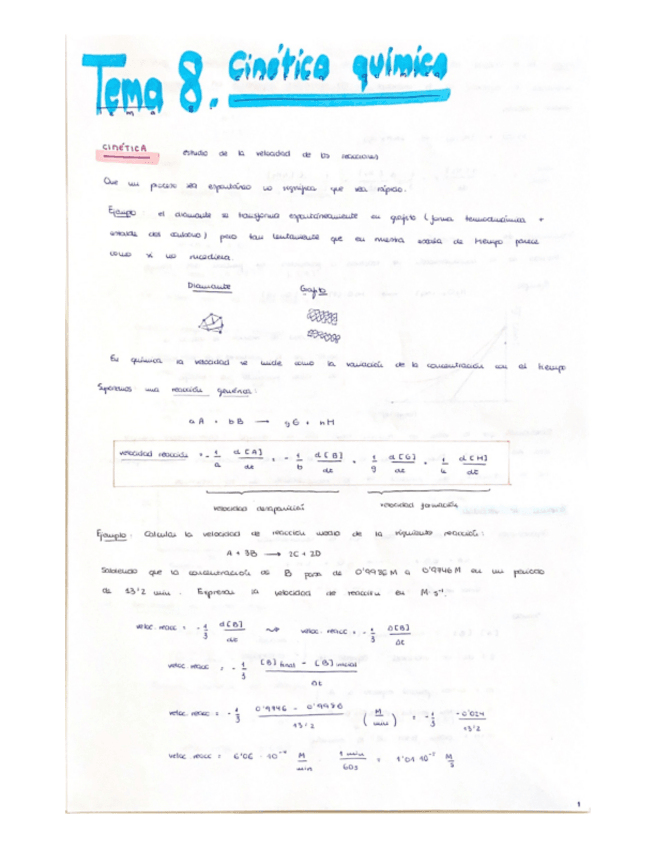 Tema 8. Cinética química
CINÉTICA estudio de la velocidad de las reacciones
Que un proceso sea espontáneo no significa que sea rápido.
Ejemplo: el diamante se transforma espontáneamente en grafito (forma termodinámica +
estable del carbono) pero tan lentamente que en nuestra escala de tiempo parece
como si no sucediera.
Diamante Grafito
En química la velocidad se mide como la variación de la concentración con el tiempo
Suponemos una reacción genérica:
aA + bB → gG + hH
velocidad reacción = - 1/a d[A]/dt = - 1/b d[B]/dt = 1/g d[G]/dt = 1/h d[H]/dt
velocidad desaparición velocidad formación
Ejemplo: Calcular la velocidad de reacción media de la siguiente reacción:
A + 3B → 2C + 2D
Sabiendo que la concentración de B pasa de M a 0'9746 M en un periodo
de 13'2 min. Expresar la velocidad de reacción en M·s⁻¹.
veloc. reacc = - 1/3 d[B]/dt ⇝ veloc. reacc = - 1/3 Δ[B]/Δt
veloc reacc = - 1/3 [B] final - [B] inicial / Δt
veloc. reacc = - 1/3 0'9746 - / 13'2 (M/min) = - 1/3 -0'024/13'2
veloc reacc = 6'06 · 10⁻⁴ M/min · 1 min/60s = 1'01 10⁻⁵ M/s
1